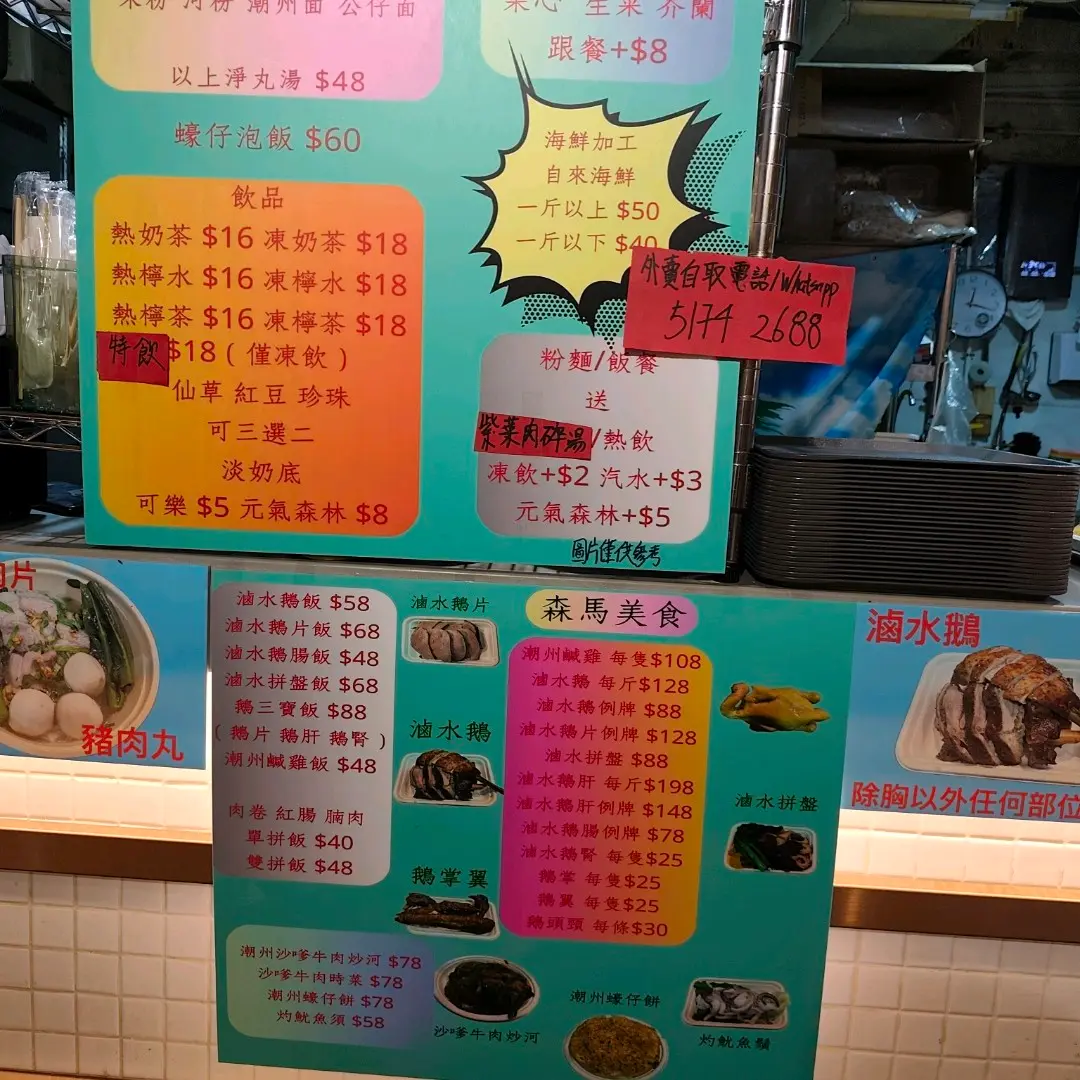 河粉 潮州面 公仔面
以上淨丸湯 $48
蠔仔泡飯 $60
生菜 芥蘭
跟餐+$8
海鮮加工
自來海鮮
一斤以上 $50
一斤以下 $40
外賣自取電話/Whatsapp
5174 2688
飲品
熱奶茶 $16 凍奶茶 $18
熱檸水 $16 凍檸水 $18
熱檸茶 $16 凍檸茶 $18
特飲 $18 ( 僅凍飲 )
仙草 紅豆 珍珠
可三選二
淡奶底
可樂 $5 元氣森林 $8
粉麵/飯餐
送
紫菜肉碎湯/熱飲
凍飲+$2 汽水+$3
元氣森林+$5
圖片僅供參考
肉片
豬肉丸
滷水鵝飯 $58
滷水鵝片飯 $68
滷水鵝腸飯 $48
滷水拼盤飯 $68
鵝三寶飯 $88
( 鵝片 鵝肝 鵝腎 )
潮州鹹雞飯 $48
肉卷 紅腸 腩肉
單拼飯 $40
雙拼飯 $48
滷水鵝片
滷水鵝
鵝掌翼
森馬美食
潮州鹹雞 每隻$108
滷水鵝 每斤$128
滷水鵝例牌 $88
滷水鵝片例牌 $128
滷水拼盤 $88
滷水鵝肝 每斤$198
滷水鵝肝例牌 $148
滷水鵝腸例牌 $78
滷水鵝腎 每隻$25
鵝掌 每隻$25
鵝翼 每隻$25
鵝頭頸 每條$30
滷水拼盤
潮州沙嗲牛肉炒河 $78
沙嗲牛肉時菜 $78
潮州蠔仔餅 $78
灼魷魚須 $58
沙嗲牛肉炒河
潮州蠔仔餅
灼魷魚鬚
滷水鵝
除胸以外任何部位